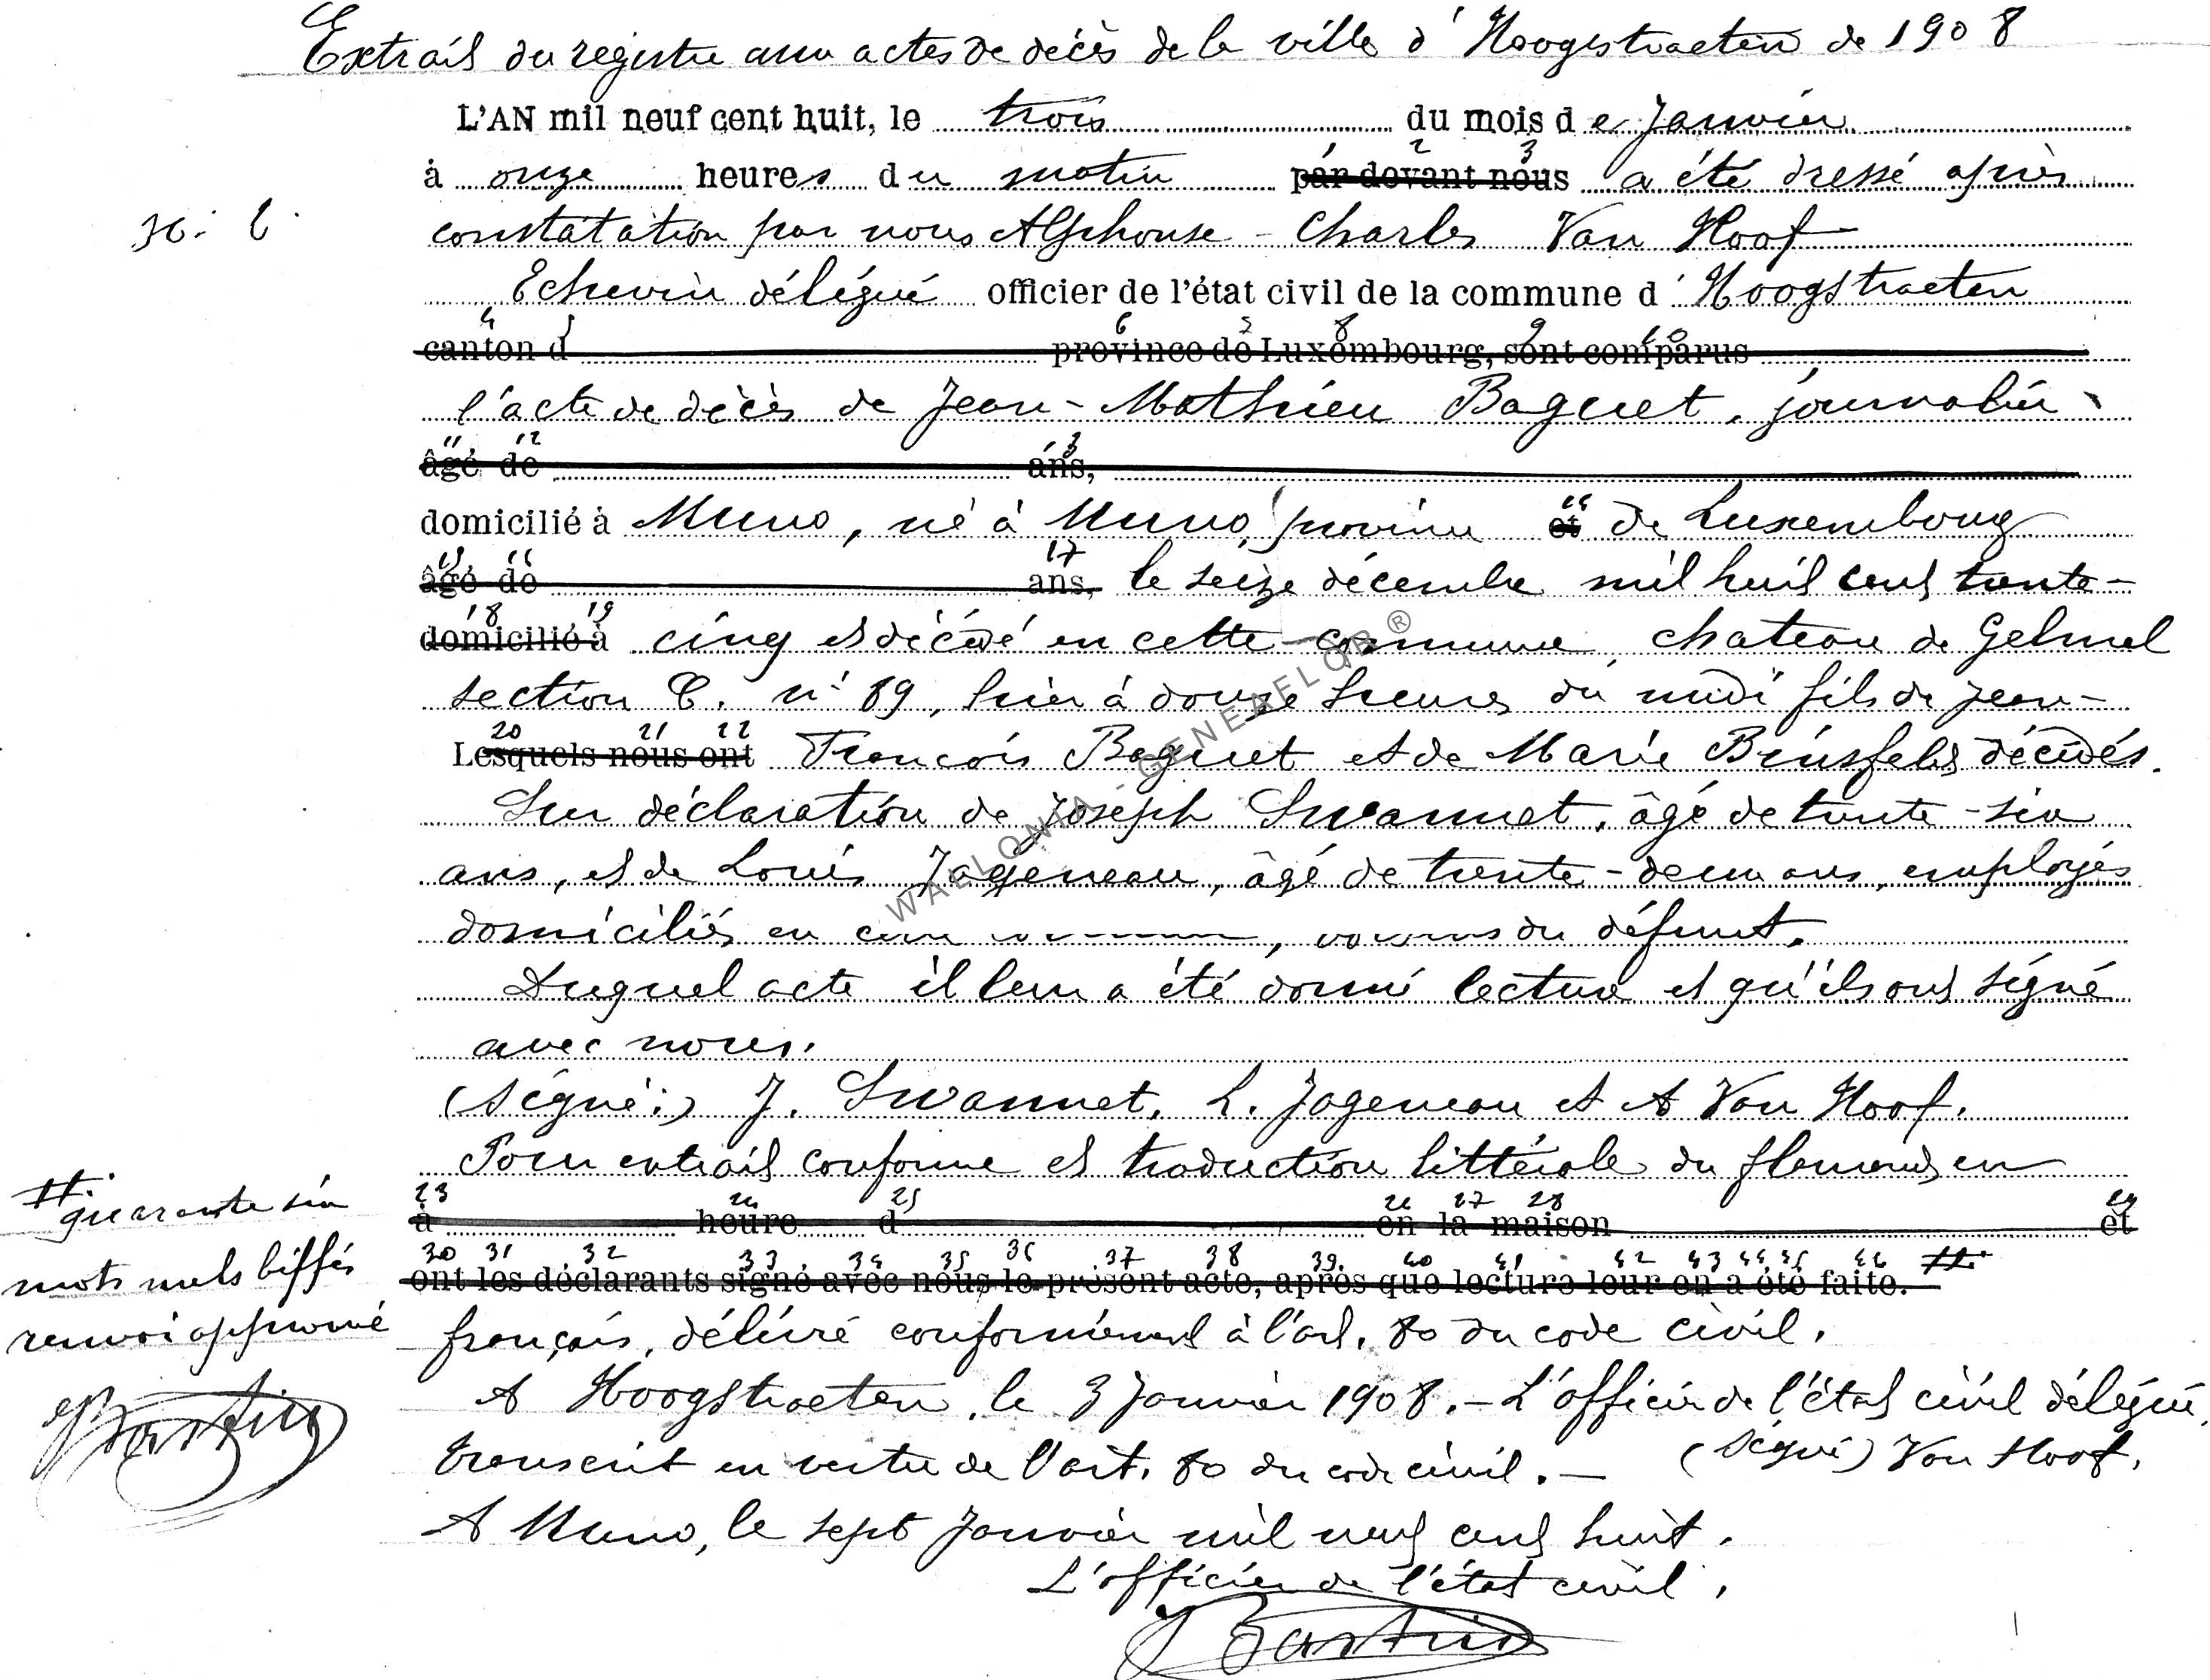 Extrait du registre aux actes de décès de la ville d'Hoogstraeten de 1908
L'AN mil neuf cent huit, le trois du mois de Janvier
1 2 3
à onze heures du matin par devant nous a été dressé après
N: 2.
constatation par nous Alphonse - Charles Van Hoof
Echevin délégué officier de l'état civil de la commune d'Hoogstraeten
4 5 6 7 8 9 10
canton d province de Luxembourg, sont comparus
l'acte de décès de Jean-Mathieu Baguet, journalier
11 12 13
âgé de ans,
domicilié à Muno, né à Muno, province et de Luxembourg
14
15 16 17
âgé de ans, le seize décembre mil huit cent trente-
18 19
domicilié à cinq et décédé en cette commune, chateau de Gelmel
section C. n° 89, hier à douze heures du midi fils de Jean-
20 21 22
Lesquels nous ont François Baguet et de Marie décédés.
Sur déclaration de Joseph Swannet, âgé de trente-six
ans, et de Louis Jageneau, âgé de trente-deux ans, employés
domiciliés en cette commune, voisins du défunt.
Duquel acte il leur a été donné lecture et qu'ils ont signé
avec nous.
(Signé:) J. Swannet, L. Jageneau et A Van Hoof.
Pour extrait conforme et traduction littérale du flamand en
23 24 25 26 27 28 29
à heure d en la maison et
30 31 32 33 34 35 36 37 38 39. 40 41 42 43 44 45 46
ont les déclarants signé avec nous le présent acte, après que lecture leur en a été faite. #
français, délivré conformément à l'art. 80 du code civil.
# quarante six
mots nuls biffés
renvoi approuvé
Bastin
A Hoogstraeten, le 3 Janvier 1908. - L'officier de l'état civil délégué,
(signé) Van Hoof.
transcrit en vertu de l'art. 80 du code civil. -
A Muno, le sept Janvier mil neuf cent huit.
L'officier de l'état civil,
Bastin
WALLONIA - GENEAELOR ®